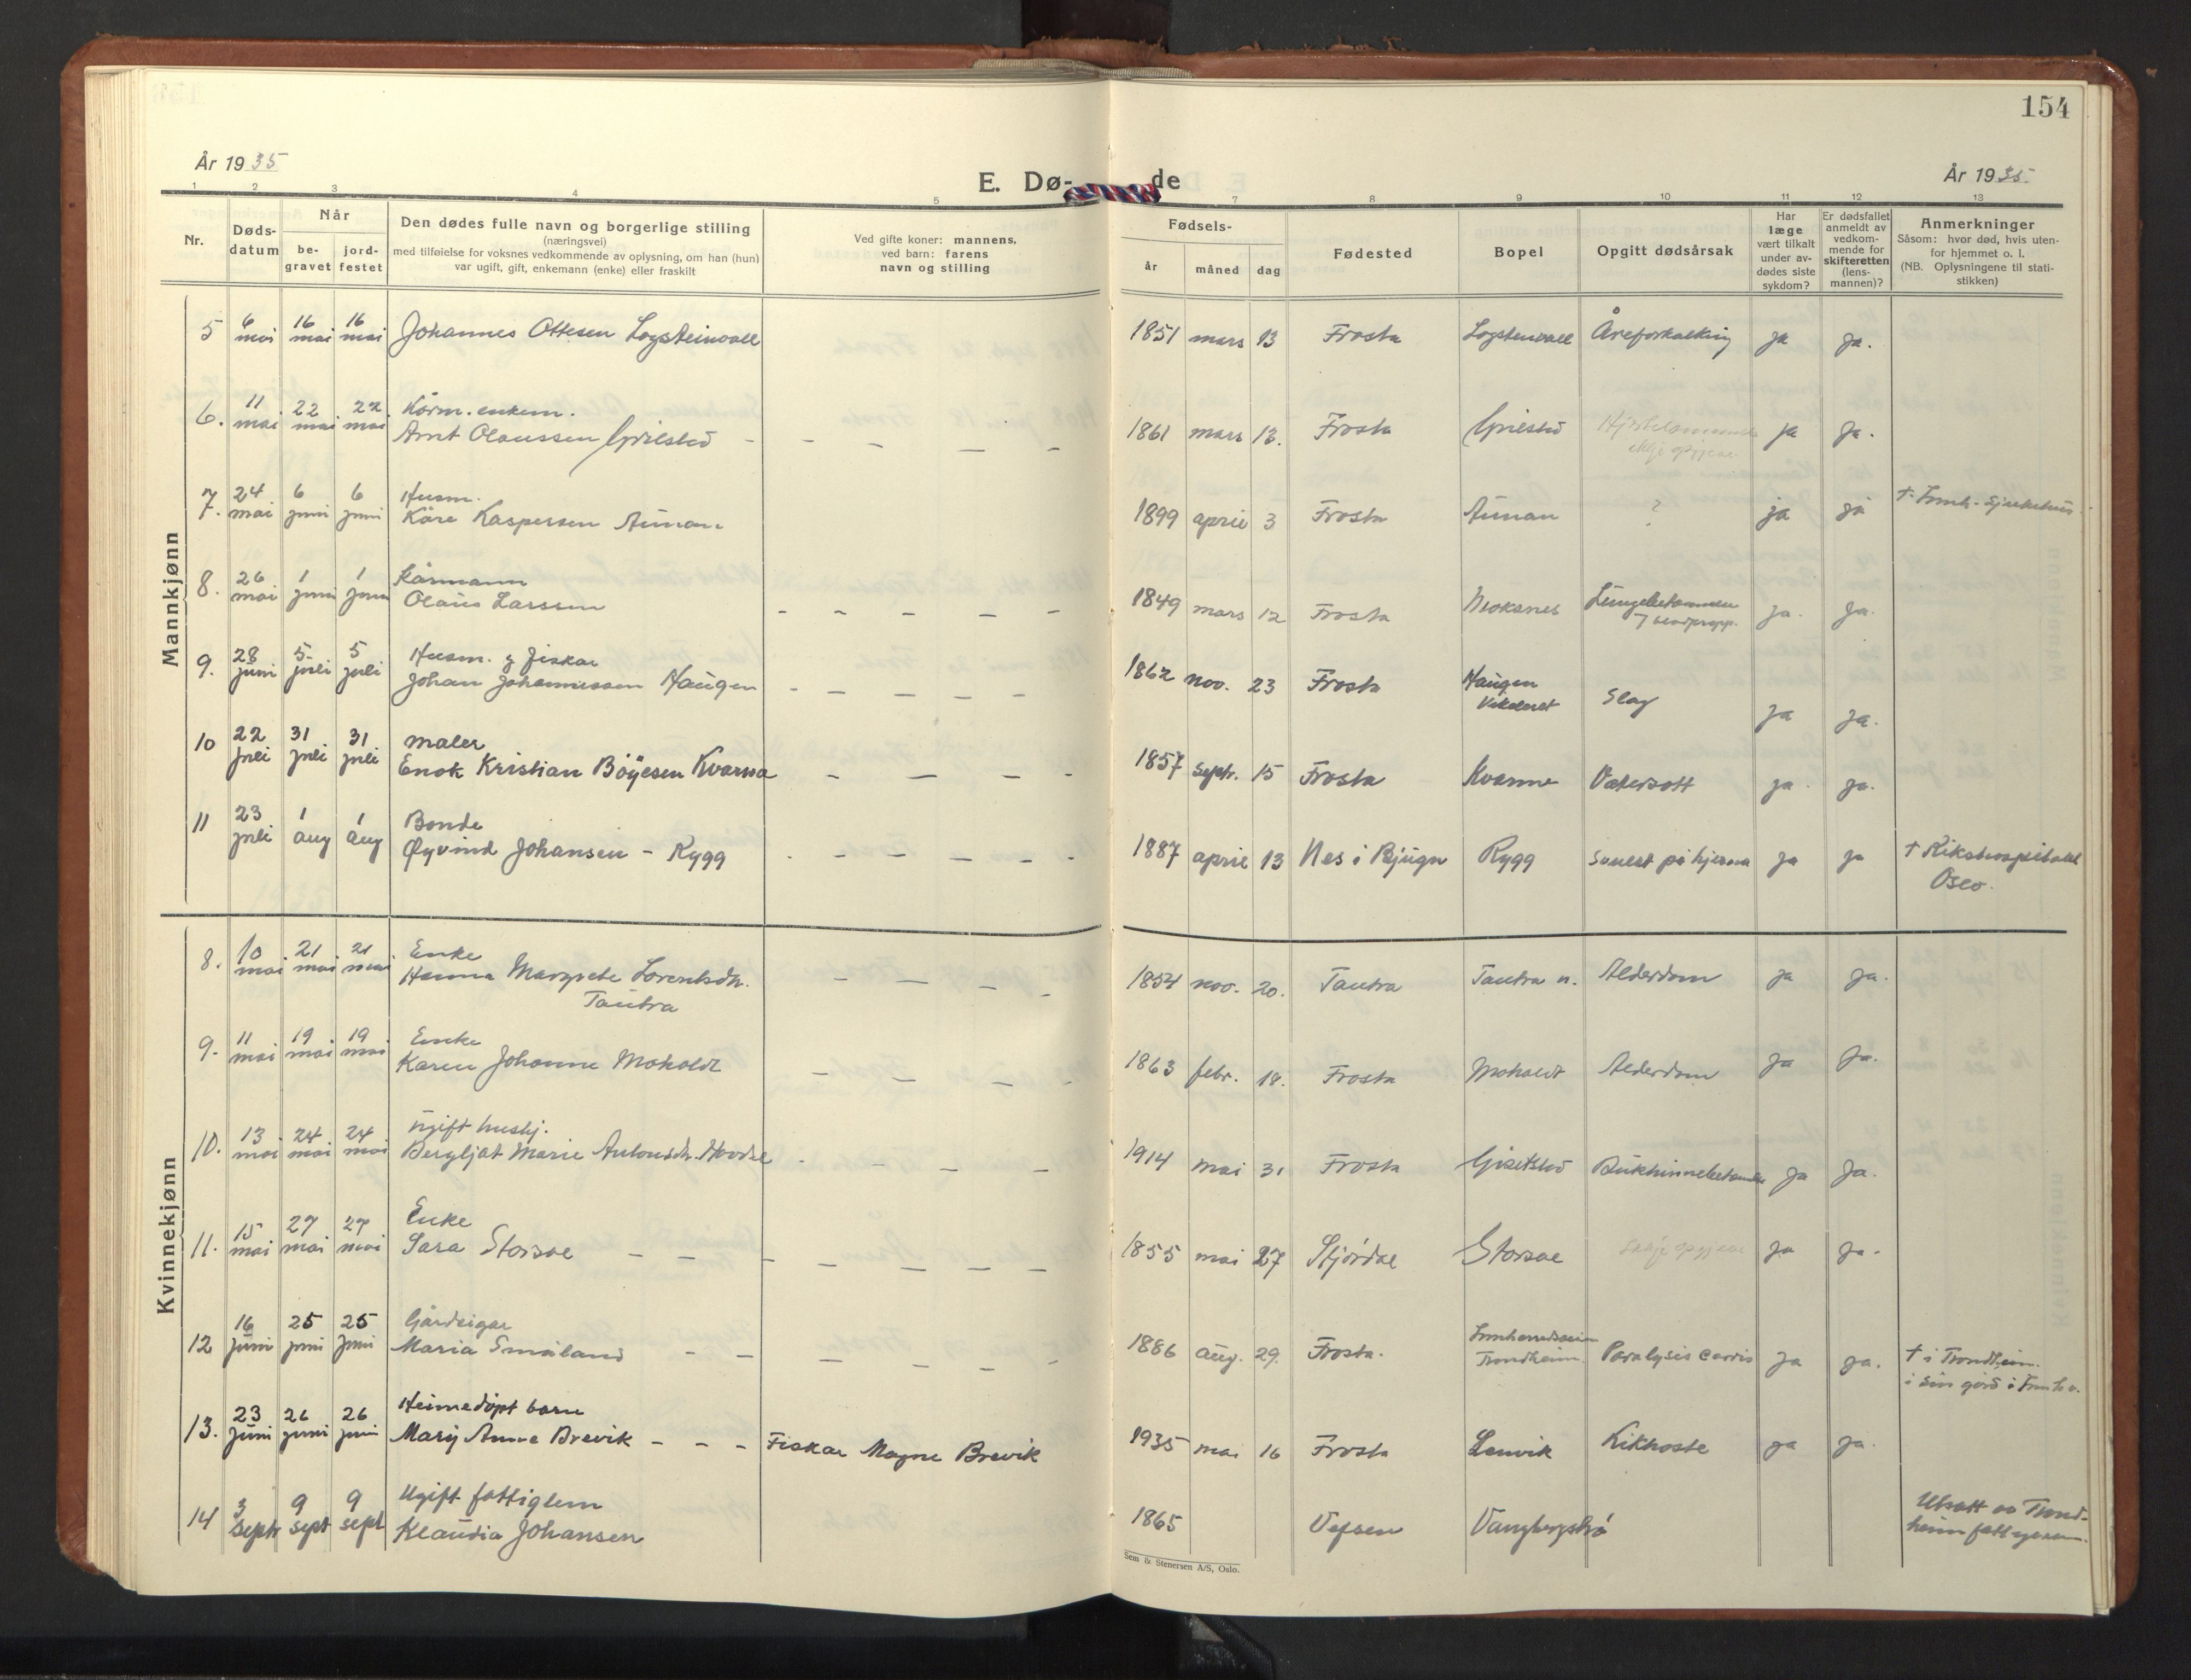 154
År 1935
E. Døde
År 1935
1 2 3 4 5 7 8 9 10 11 12 13
Nr.
Døds-
datum
Når
be-
gravet
jord-
festet
Den dødes fulle navn og borgerlige stilling
(næringsvei)
med tilføielse for voksnes vedkommende av oplysning, om han (hun)
var ugift, gift, enkemann (enke) eller fraskilt
Ved gifte koner: mannens,
ved barn: farens
navn og stilling
Fødsels-
år måned dag
Fødested
Bopel
Opgitt dødsårsak
Har
læge
vært tilkalt
under av-
dødes siste
sykdom?
Er dødsfallet
anmeldt av
vedkom-
mende for
skifteretten
(lens-
mannen)?
Anmerkninger
Såsom: hvor død, hvis uten-
for hjemmet o. l.
(NB. Oplysningene til stati-
stikken)
Mannkjønn
5 6 mai 16 mai 16 mai Johannes Ottesen Logsteinvall 1851 mars 13 Frosta Logstenvall Åreforkalking ja ja.
6. 11 mai 22 mai 22 mai Kårm. enkem.
Arnt Olaussen Grilstad 1861 mars 13. Frosta Grilstad ja ja.
7. 24 mai 6 juni 6 juni Husm.
Kåre Kaspersen Aunan 1899 april 3 Frosta Aunan ? ja ja + Trmh. Sjukehus
8. 26 mai 1 juni 1 juni Kårmann
Olaus Larssen 1849 mars 12 Frosta Lungebetennelse
blodpropp. ja. ja.
9. 28 juni 5. juli 5 juli Husm. g fiskar
Johan Johannessen Haugen 1862 nov. 23 Frosta Haugen
Slag ja ja.
10 22 juli 31 juli 31 juli maler
Enok Kristian Böyesen Kvarna 1857 septr. 15 Frosta Kvarme Vatersott ja. ja.
11 23 juli 1 aug 1 aug Bonde
Øyvind Johansen - Rygg 1887 april 13 Nes i Bjugn Rygg Svulst på hjerna ja ja + Rikshospitalet
Oslo.
Kvinnekjønn
8. 10 mai 21 mai 21 mai Enke
Hanna Margrete Lorentsdtr.
Tautra 1854 nov. 20. Tautra Tautra n. Alderdom ja ja.
9. 11 mai 19 mai 19 mai Enke
Karen Johanne Moholdt 1863 febr. 18. Frosta Moholdt Alderdom ja ja.
10. 13 mai 24 mai 24 mai Ugift hushj.
Bergljot Marie Antonsdtr. 1914 mai 31 Frosta ja ja.
11. 15 mai 27 mai 27 mai Enke
Sara Storsve 1855 mai 27 Stjørdal Storsve ja ja.
12 16 juni 25 juni 25 juni Gårdeigar
Maria Småland 1886 aug. 29. Frosta. Trondheim. Paralysis cordis ja ja. + i Trondheim.
i sin gård i
13. 23 juni 26 juni 26 juni Heimedøpt barn
Mary Anna Brevik Fiskar Magne Brevik 1935 mai 16 Frosta Lenvik Kikhoste ja ja.
14 3 septr 9 sept 9 sept Ugift fattiglem
Klaudia Johansen 1865 Vefsen Vangbergstrø Utsatt av Trond-
heim
Sem & Stenersen A/S, Oslo.